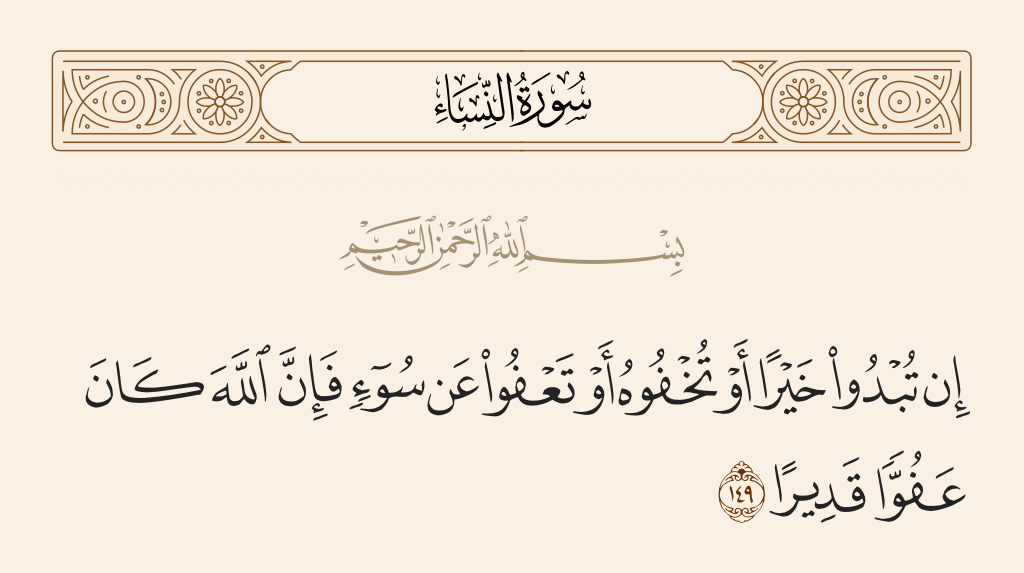 سُورَةُ النِّسَاءِ
بِسْمِ ٱللَّهِ ٱلرَّحْمَٰنِ ٱلرَّحِيمِ
إِن تُبْدُوا۟ خَيْرًا أَوْ تُخْفُوهُ أَوْ تَعْفُوا۟ عَن سُوٓءٍ فَإِنَّ ٱللَّهَ كَانَ
عَفُوًّا قَدِيرًا ١٤٩